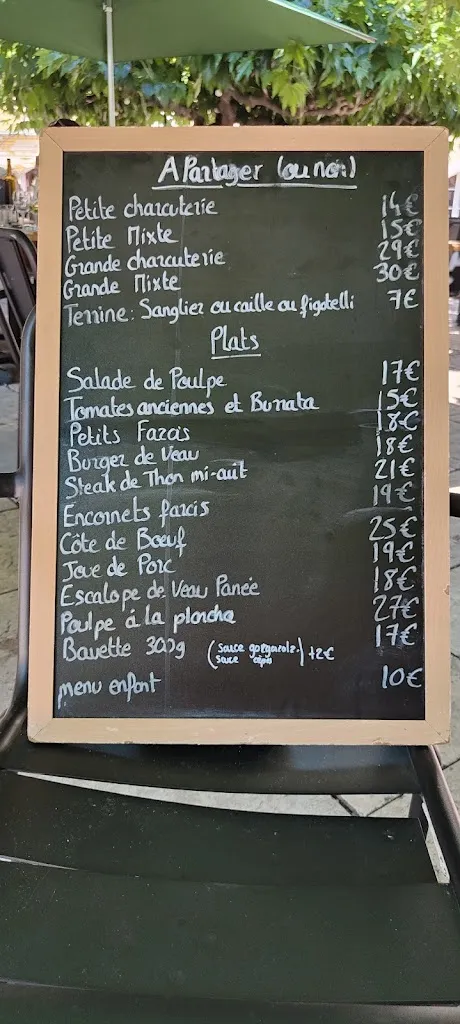 A Partager (ou non)
Petite charcuterie 14€
Petite Mixte 15€
Grande charcuterie 29€
Grande Mixte 30€
Terrine: Sanglier ou caille ou figatelli 7€
Plats
Salade de Poulpe 17€
Tomates anciennes et Burrata 15€
Petits Farcis 18€
Burger de Veau 18€
Steak de Thon mi-cuit 21€
Encornets farcis 19€
Côte de Bœuf 25€
Joue de Porc 19€
Escalope de Veau Panée 18€
Poulpe à la plancha 27€
Bavette 300g (sauce gorgonzola 17€
sauce cèpes) +2€
menu enfant 10€